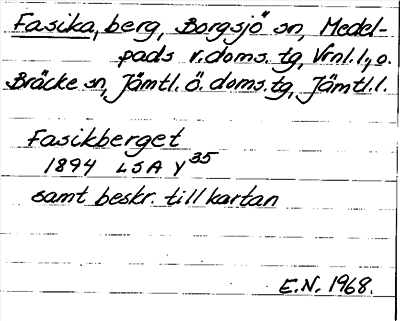 Fasika, berg, Borgsjö sn, Medel-
pads v. doms. tg, Vrnl. l, o.
Bräcke sn, Jämtl. ö. doms. tg, Jämtl. l.
Fasikberget
1894 LSA Y 35
samt beskr. till kartan
E.N. 1968.